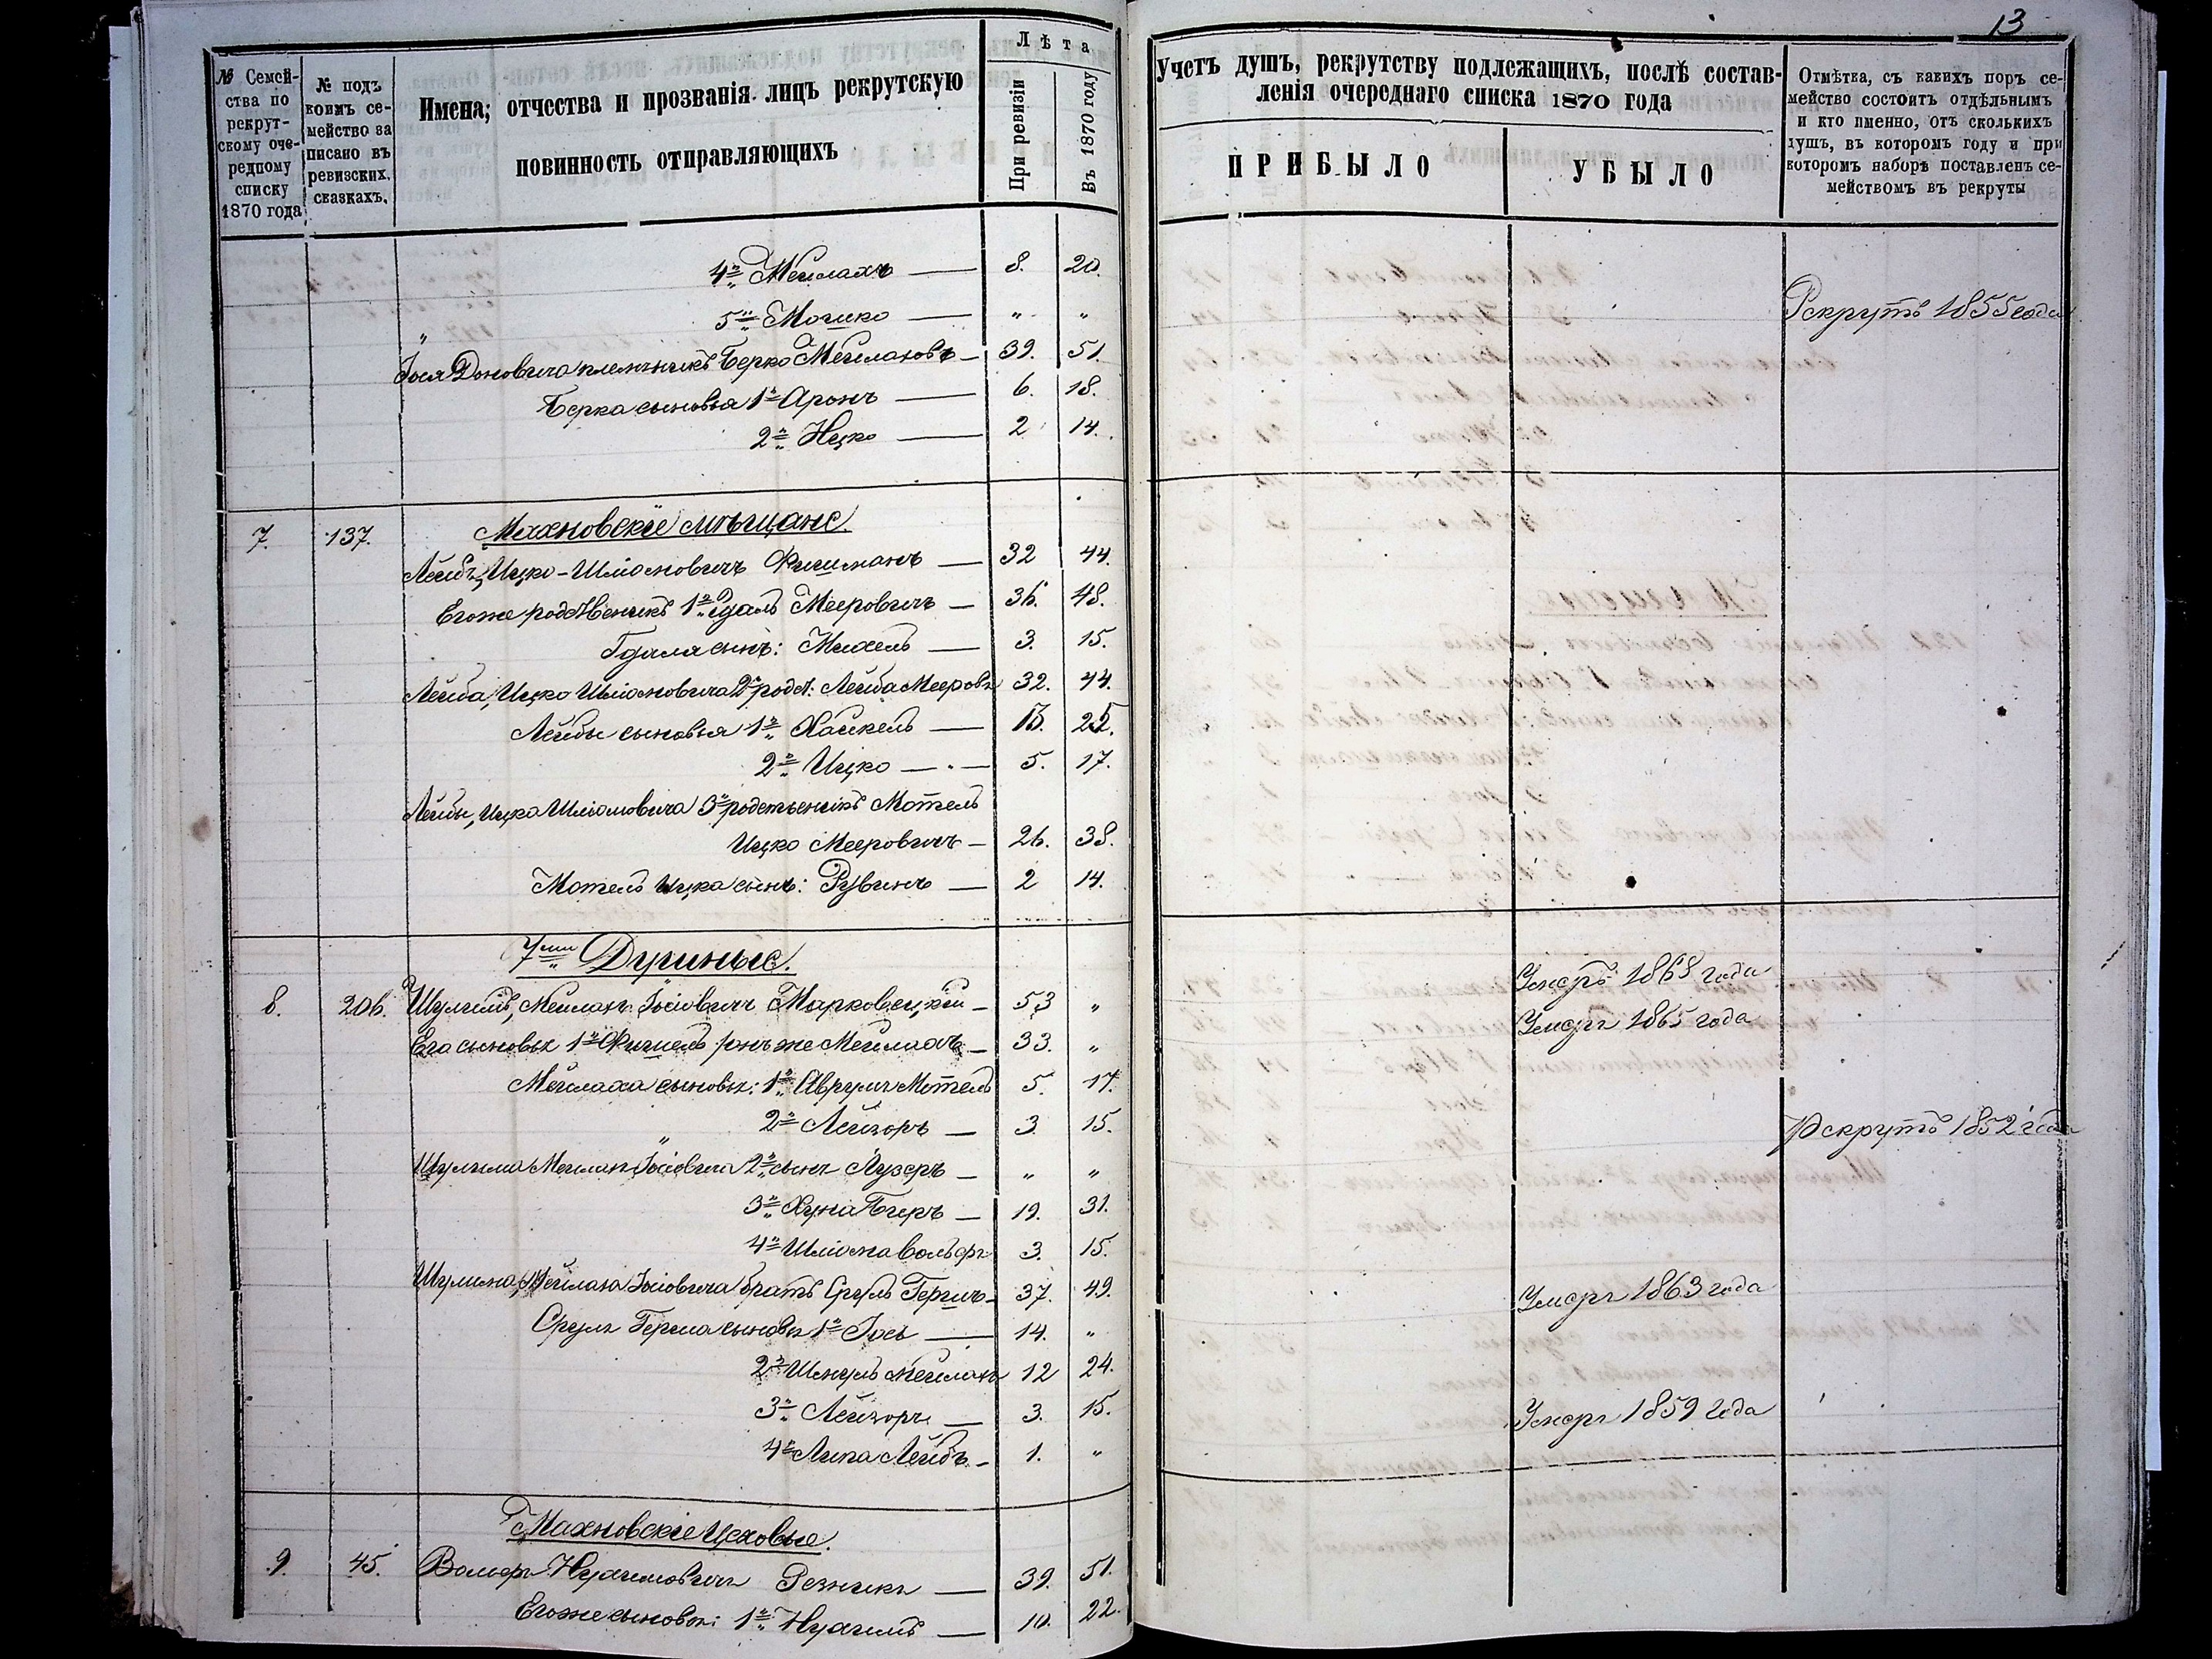 13
№ Семей-
ства по
рекрут-
скому оче-
редному
списку
1870 года
№ подъ
коимъ се-
мейство за
писано въ
ревизских.
сказкахъ.
Имена, отчества и прозванія лицъ рекрутскую
повинность отправляющихъ
Лѣта
При ревизіи
Въ 1870 году
Учетъ душъ, рекрутству подлежащихъ, послѣ состав-
ленія очереднаго списка 1870 года
ПРИБЫЛО
УБЫЛО
Отмѣтка, съ какихъ поръ се-
мейство состоитъ отдѣльнымъ
и кто именно, отъ сколькихъ
душъ, въ которомъ году и при
которомъ наборѣ поставленъ се-
мействомъ въ рекруты
4й Мейлахъ — 8. 20.
5й Мошко — " " Рекрутъ 1855 года
Іося Доновича племянникъ Берко Мейлаховъ — 39. 51.
Берка сыновья 1й Аронъ — 6. 18.
2й Ицко — 2 14.
Махновскіе мѣщане.
7. 137. Лейбъ, Ицко-Шліомовичъ Фишманъ — 32 44.
Егоже родственикъ 1й Гдаль Мееровичъ — 36. 48.
Гдаля сынъ: Михель — 3. 15.
Лейба, Ицко Шліомовича 2й родст: Лейба Мееровъ 32. 44.
Лейбы сыновья 1й Хайкель — 13. 25.
2й Ицко — 5. 17.
Лейбы, Ицка Шліомовича 3й родственикъ Мотель
Ицко Мееровичъ — 26. 38.
Мотель Ицка сынъ: Рувинъ — 2 14.
7ми Душные.
8. 206. Шулимъ, Мейлахъ Іосіовичъ Марковецкій — 53 " Умеръ 1868 года
Его сыновья 1й Фишель онъ же Мейлахъ — 33. " Умеръ 1865 года
Мейлаха сыновья: 1й Аврумъ Мотель 5. 17.
2й Лейзоръ — 3. 15.
Шулима Мейлаха Іосіовича 2й сынъ Лузеръ — " " Рекрутъ 1852 года
3й Хуна Беръ — 19. 31.
4й Шліома Вольфъ 3. 15.
Шулима, Мейлаха Іосіовича братъ Сруль Гершъ — 37. 49.
Срулъ Герша сыновья 1й Іось — 14. " Умеръ 1863 года
2й Шмуль Мейлахъ 12 24.
3й Лейзоръ — 3. 15.
4й Липа Лейбъ — 1. " Умеръ 1859 года
Махновскіе Цеховые.
9. 45. Вольфъ Нухимовичъ Резникъ — 39. 51.
Егоже сыновья: 1й Нухимъ — 10. 22.